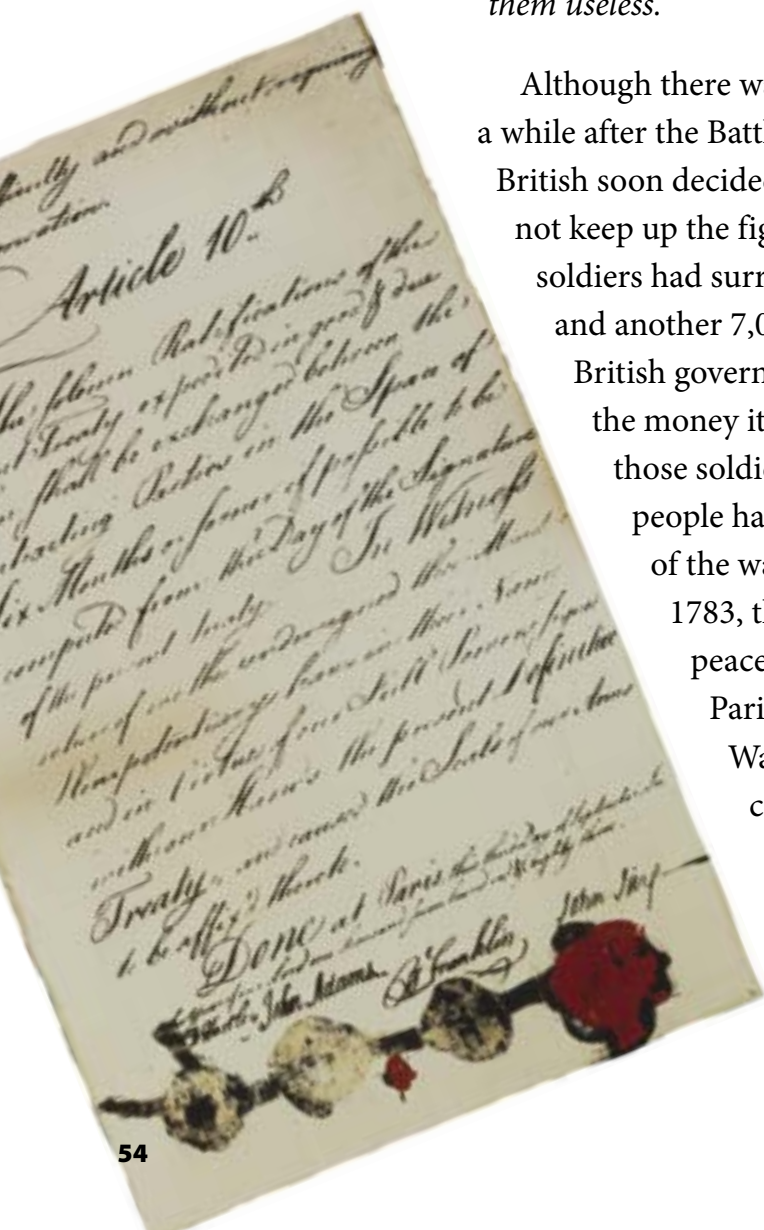 them useless.
Although there wa
a while after the Battl
British soon decided
not keep up the fig
soldiers had surr
and another 7,0
British governm
the money it
those soldie
people ha
of the wa
1783, th
peace
Pari
Wa
c
and without requiring
Article 10th
The solemn Ratifications of the
Treaty expedited in good & due
shall be exchanged between the
Parties in the Space of
Six Months or sooner if possible to be
computed from the Day of the Signature
of the present Treaty. In Witness
whereof we the undersigned their
Plenipotentiary have in their Name
and in Virtue of our Full Powers
with our Hands the present Definitive
Treaty, and caused the Seals of our Arms
to be affix'd thereto.
Done at Paris this third Day of September In
the Year of our Lord one thousand seven hundred & eighty three.
John Adams B Franklin John Jay
54